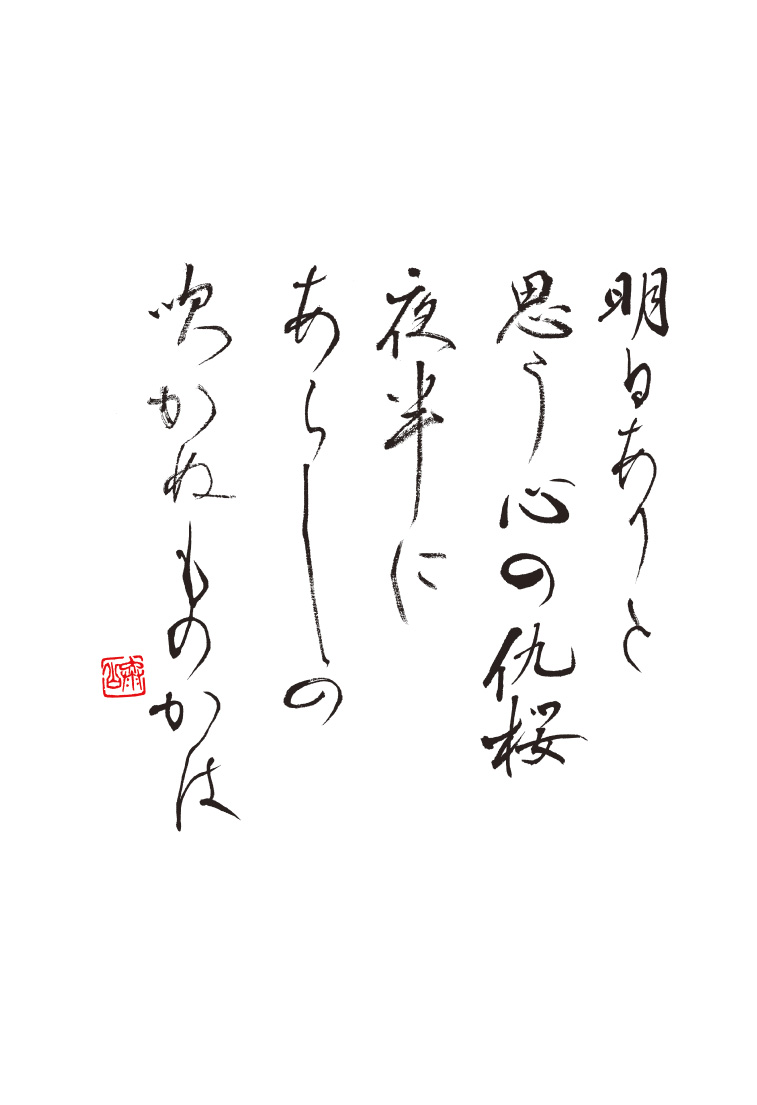 明日ありと
思う心の仇桜
夜半に
あらしの
吹かぬものかは